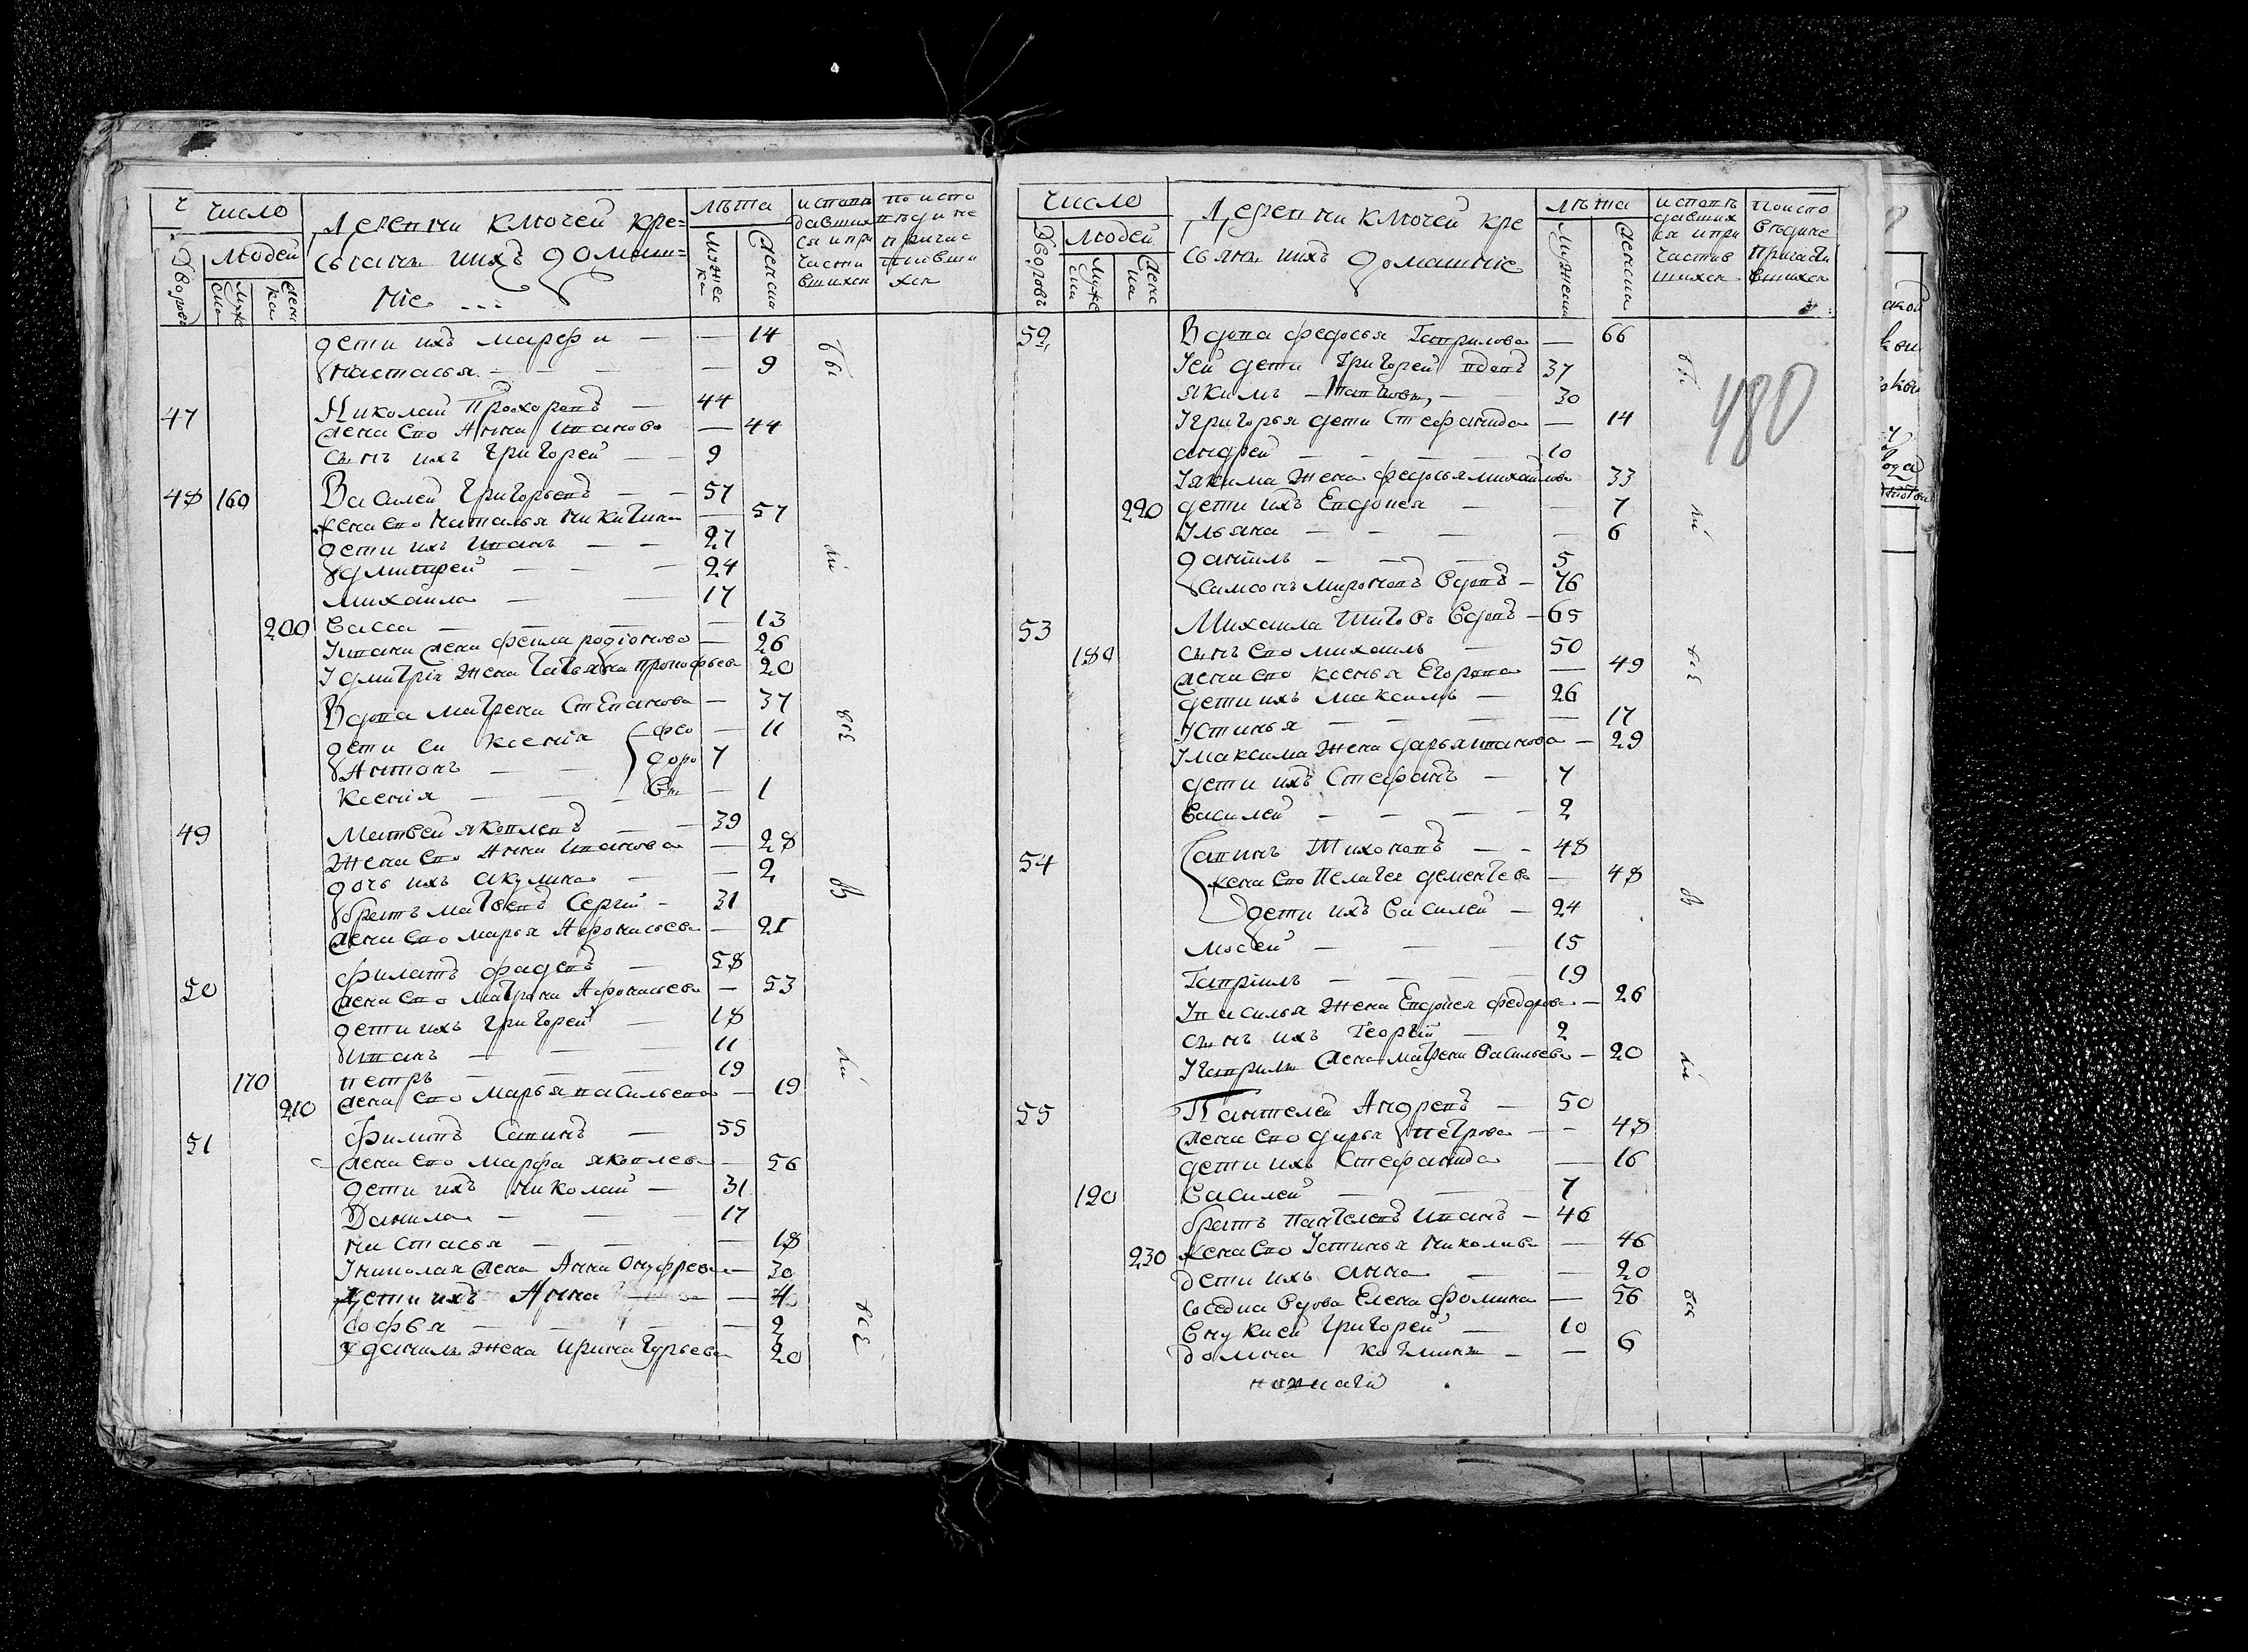 Число
Людей
Дворовъ
Мужеска
Женска
Деревни Ключей кре=
стьяне ихъ домаш=
ніе
лѣта
Мужеска
Женска
исповѣдавшихся и причастившихся
по исповѣди не причастившихся
дети ихъ марфа — — 14
настасья — — 9
47 Николай Прохоровъ — 44
жена ево Анна иванова — 44
сынъ ихъ григорей — — 9
48 160 Василей григорьевъ — — 57
жена ево наталья микитина — 57
дети ихъ иванъ — — 27
дмитрей — — 24
михаила — — 17
200 васса — — — 13
Ивана жена фекла родіонова — 26
Дмитрія жена татьяна прокофьева 20
Вдова матрена степанова — 37
дети ея ксенія — 11
Антонъ — — 7
ксенія — — 1
49 матвей яковлевъ — — 39
жена ево Анна иванова — 28
дочь ихъ акулина — — 2
братъ матвевъ сергій — 31
жена ево марья Афонасьева — 21
50 филатъ фадеевъ — 58
жена ево матрена Афонасьева — 53
дети ихъ григорей — 18
иванъ — — — 11
170 петръ — — — 19
210 жена ево марья васильева — 19
51 филипъ савинъ — 55
жена ево марфа яковлева — 56
дети ихъ николай — 31
Данила — — — 17
настасья — — — 18
николая жена Анна Онуфрева — 30
дети ихъ Анна — 4
софья — — — 2
данилы жена ирина гурьева 20
бы
ли
всѣ
бы
ли
всѣ
Число
Людей
Дворовъ
Мужеска
Женска
Деревни Ключей кре
стьяне ихъ домашніе
лѣта
Мужеска
Женска
исповѣдавшихся и причастившихся
по исповѣди не причастившихся
480
52 Вдова федосья гаврилова — 66
Ней дети григорей вдовъ 37
якимъ — 30
У григорья дети стефанида — 14
андрей — — — — 10
У якима жена федосья михаилова 33
220 дети ихъ Евдокея — — 7
Ульяна — — — 6
данилъ — — — 5
самсонъ мироновъ вдовъ — 76
53 Михаила титовъ вдовъ — 65
180 сынъ ево михаилъ — 50
жена ево ксенья Егорова — 49
дети ихъ максимъ — 26
Устинья — — — 17
У максима жена дарья иванова — 29
дети ихъ стефанъ — 7
василей — — — — 2
54 савинъ Тихоновъ — — 48
жена ево пелагея дементева — 48
дети ихъ василей — 24
мосей — — — 15
гаврилъ — — — — 19
У василья жена Евдокея федорова — 26
сынъ ихъ георгій — 2
У гаврилы жена матрена васильева — 20
55 Пантелей Андревъ — 50
жена ево дарья петрова — — 48
дети ихъ стефанида — 16
190 василей — — 7
братъ пантелевъ иванъ — 46
230 жена ево Устинья николаева — 46
дети ихъ анна — — 20
соседка вдова Елена фомина — 56
внуки ей григорей — 10
домна — — 6
бы
ли
всѣ
бы
ли
всѣ